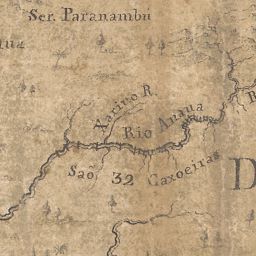 Ser. Paranambú
Xarivo R.
Rio Anaua
Saõ 32 Caxoeiras
D